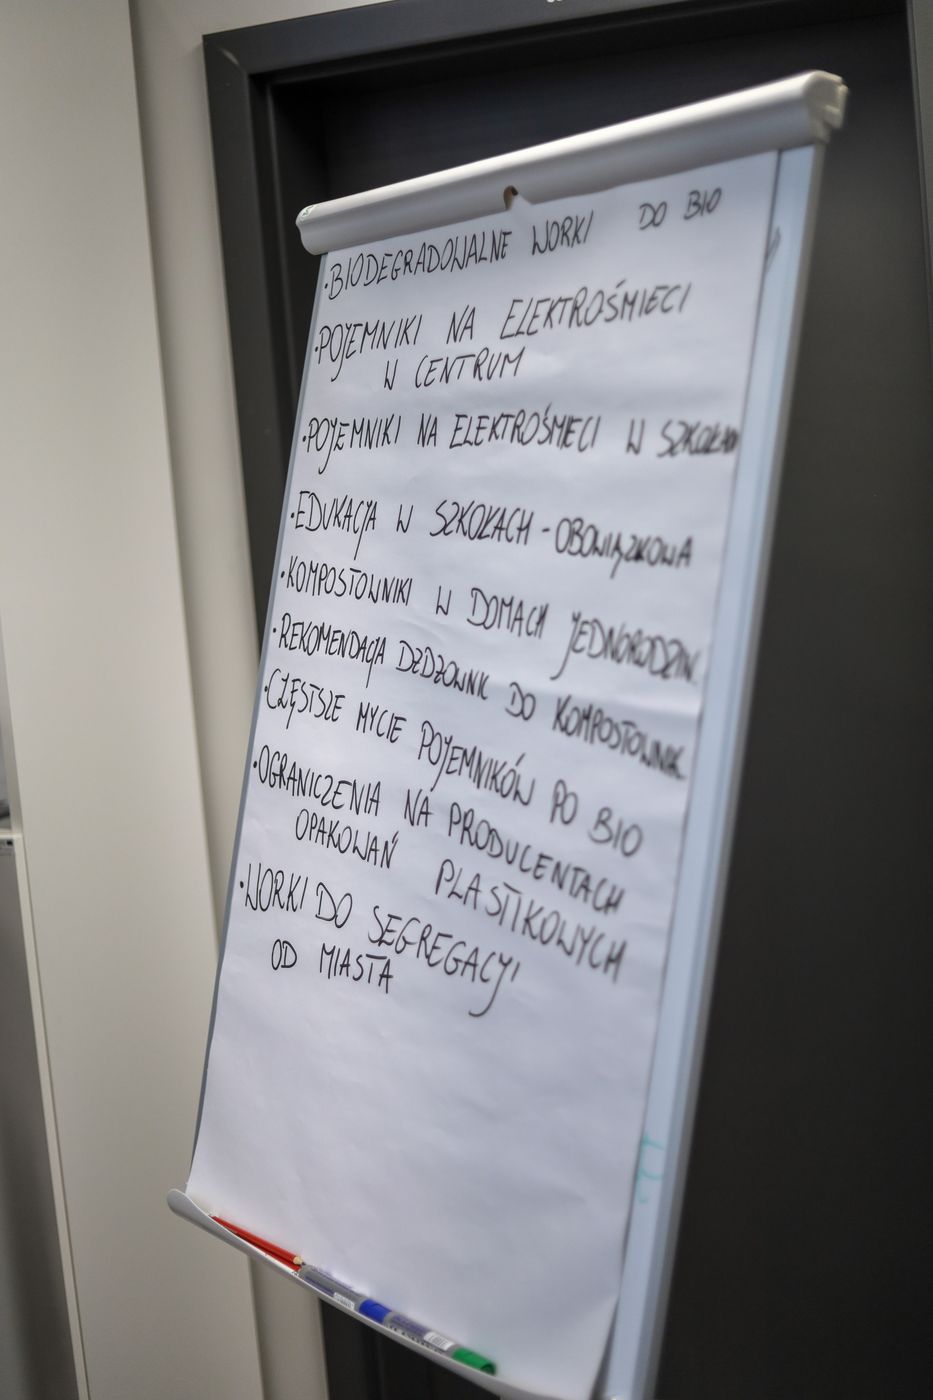 • BIODEGRADOWALNE WORKI DO BIO
• POJEMNIKI NA ELEKTROŚMIECI
W CENTRUM
• POJEMNIKI NA ELEKTROŚMIECI W SZKOŁACH
• EDUKACJA W SZKOŁACH - OBOWIĄZKOWA
• KOMPOSTOWNIKI W DOMACH JEDNORODZIN.
• REKOMENDACJA DŻDŻOWNIC DO KOMPOSTOWNIK.
• CZĘSTSZE MYCIE POJEMNIKÓW PO BIO
• OGRANICZENIA NA PRODUCENTACH
OPAKOWAŃ PLASTIKOWYCH
• WORKI DO SEGREGACJI
OD MIASTA